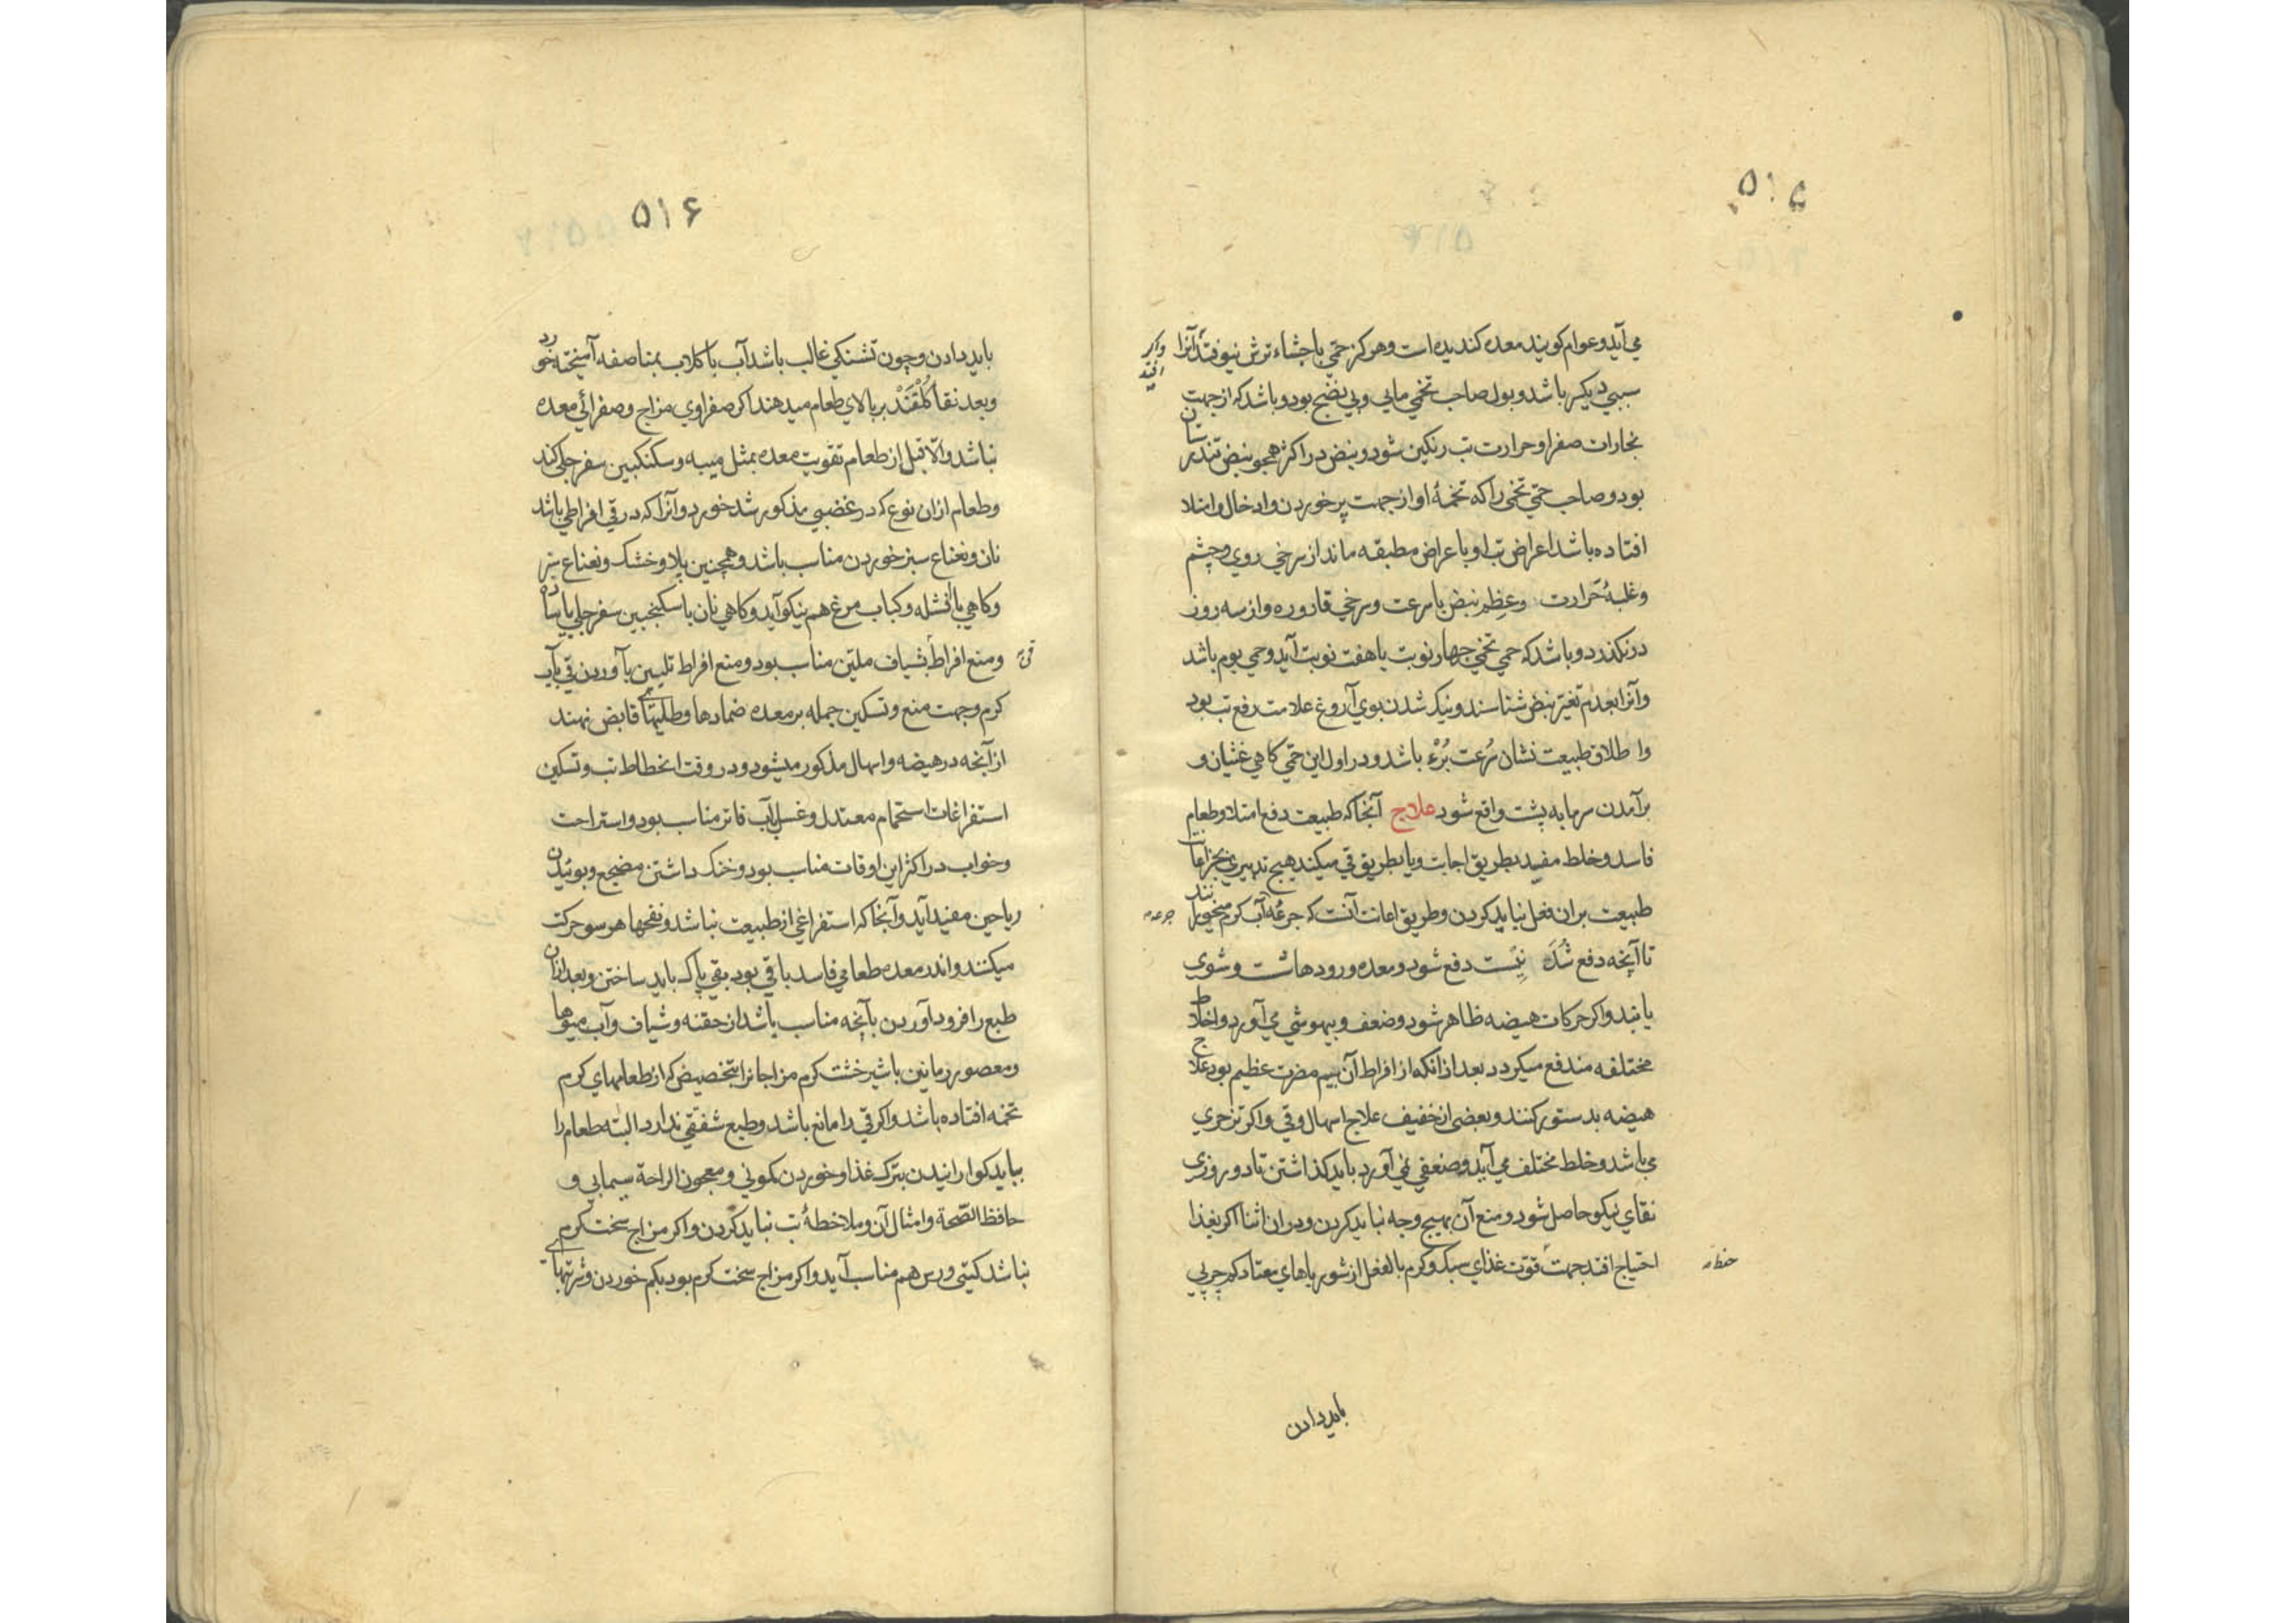 ۵۱۵
می آید و عوام کویند معده کندیده است و هرکز حمّی با جشاء ترش نیوفتد آنرا
واکر افتد
سببی دیکر باشد و بول صاحب تخمی مایی و بی نضج بود و باشد که از جهت
بخارات صفرا و حرارت تب رنکین شود و نبض در اکثر همچو نبض تندرستان
بود و صاحب حمّی تخمی را که تخمهٔ او از جهت پر خوردن و ادخال و امتلا
افتاده باشد اعراض تب او باعراض مطبقه ماند از سرخی روی و چشم
و غلبهٔ حَرارت و عِظم نبض با سرعت و سرخی قاروره و از سه روز
درنکذرد و باشد که حمی تخمی چهار نوبت یا هفت نوبت آید و حمی یوم باشد
و آنرا بعدم تغیّر نبض شناسند و نیک شدن بوی آروغ علامت رفع تب بود
و اطلاق طبیعت نشان سُرعت بُرْء باشد و در اول این حمّی کاهی غثیان و
برآمدن سرمایه پشت واقع شود علاج آنجا که طبیعت دفع امتلا و طعام
فاسد و خلط مفسد بطریق اجابت و یا بطریق قی میکند هیچ تدبیری بجز اعانت
طبیعت بران فعل نباید کردن و طریق اعانت آنست که جرعهٔ آب کرم میخورانند
جرعه
تا آنچه دفع شُدَ نیْست دفع شود و معده و رودها شست و شوی
یابند و اکر حرکات هیضه ظاهر شود و ضعف و بیهوشی می آورد و اخلاط
مختلفه مندفع میکردد بعد از انکه از افراط آن بیم مضرت عظیم بود علاج
هیضه بدستور کنند و بعضی از خفیف علاج اسهال و قی و اکر تزحری
می باشد و خلط مختلف می آید و ضعفی نمی آورد باید کذاشتن تا دو روزی
نقای نیکو حاصل شود و منع آن بهیچ وجه نباید کردن و دران اثنا اکر بغذا
احتیاج افتد جهت قوّت غذای سبک و کرم بالفعل از شورباهای معتاد کم چربی
باید دادن
۵۱۶
باید دادن و چون تشنکی غالب باشد آب با کلاب بمناصفه آمیخته خورد
و بعد نقا کُلْقَنْد بر بالای طعام میدهند اکر صفراوی مزاج و صفرائی معده
نباشد و الّا قبل از طعام تقویت معده بمثل میبه و سکنکبین سفرجلی کند
و طعام از ان نوع که در غضبی مذکور شد خورد و آنرا که در قی افراطی باشد
نان و نعناع سبز خوردن مناسب باشد و همچنین پلاو خشک و نعناع سبز
و کاهی با افشله و کباب مرغ هم نیکو آید و کاهی نان با سکنجبین سفرجلی یا ساده
و منع افراط بشیاف ملیّن مناسب بود و منع افراط تلیین بآوردن قی باید
قی
کرم و جهت منع و تسکین جمله بر معده ضمادها و طلیهای قابض نهند
از آنچه در هیضه و اسهال مذکور میشود و در وقت انحطاط تب و تسکین
استفراغات استحمام معتدل و غسل بآب فاتر مناسب بود و استراحت
و خواب در اکثر این اوقات مناسب بود و خنک داشتن مضجع و بوئیدن
ریاحین مفید آید و آنجا که استفراغی از طبیعت نباشد و نفخها هر سو حرکت
میکنند و اندر معده طعامی فاسد باقی بود بقی پاک باید ساختن و بعد از ان
طبع را فرود آوردن بآنچه مناسب باشد از حقنه و شیاف و آب میوها
و معصور رمانین با شیرخشت کرم مزاجانرا بتخصیص که از طعامهای کرم
تخمه افتاده باشد و اکر قی را مانع باشد و طبع شفقتی ندارد البته طعام را
بباید کوارانیدن بترک غذا و خوردن کمونی و معجون الراحة سیمابی و
حافظ الصّحة و امثال آن و ملاحظهٔ تب نباید کردن و اکر مزاج سخت کرم
نباشد کیتی ورس هم مناسب آید و اکر مزاج سخت کرم بود بکم خوردن و شربتهای